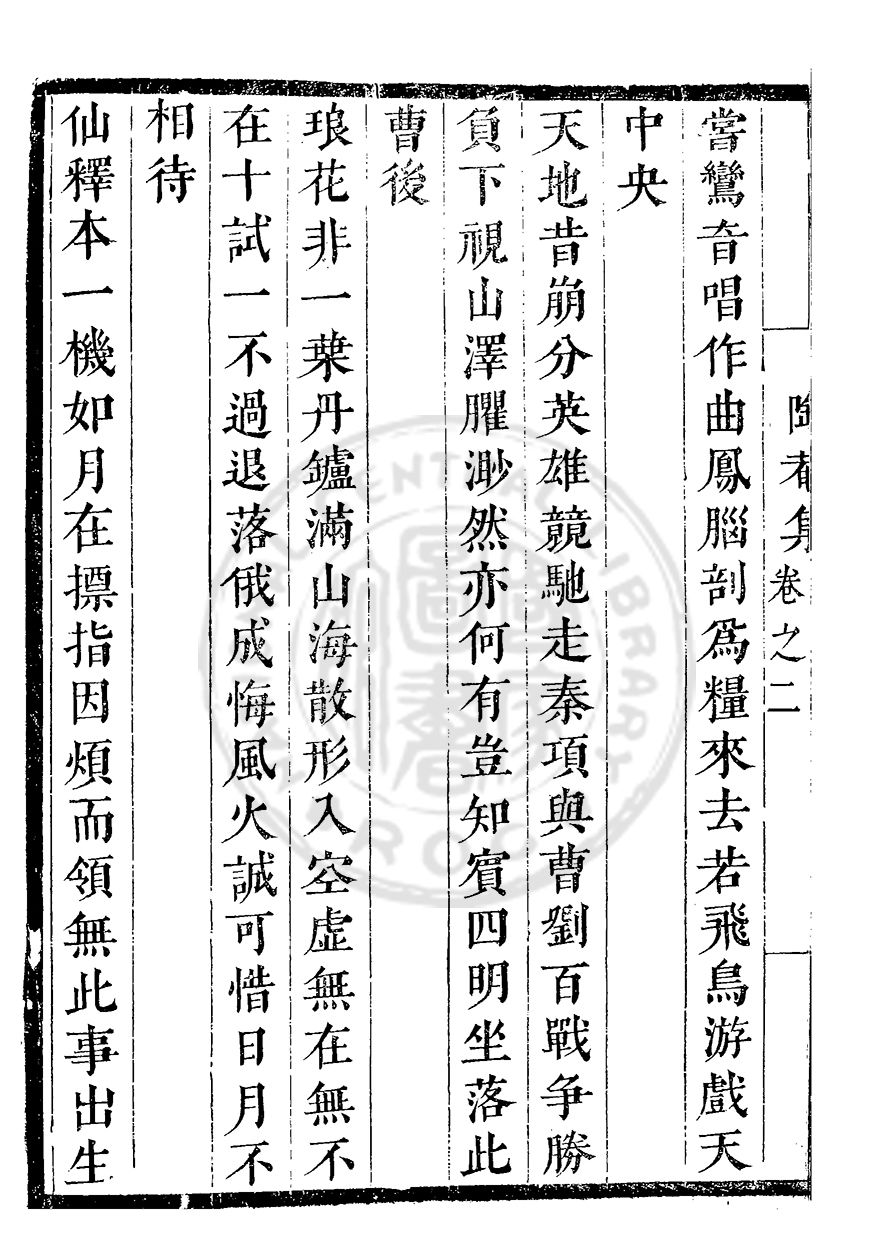 集卷之二
嘗鸞音唱作曲鳳腦剖為糧來去若飛鳥游戲天
中央
天地昔崩分英雄競馳走秦項與曹劉百戰爭勝
負下視山澤臞渺然亦何有豈知賓四明坐落此
曹後
琅花非一葉丹鑪滿山海散形入空虛無在無不
在十試一不過退落俄成悔風火誠可惜日月不
相待
仙釋本一機如月在摽指因煩而領無此事出生